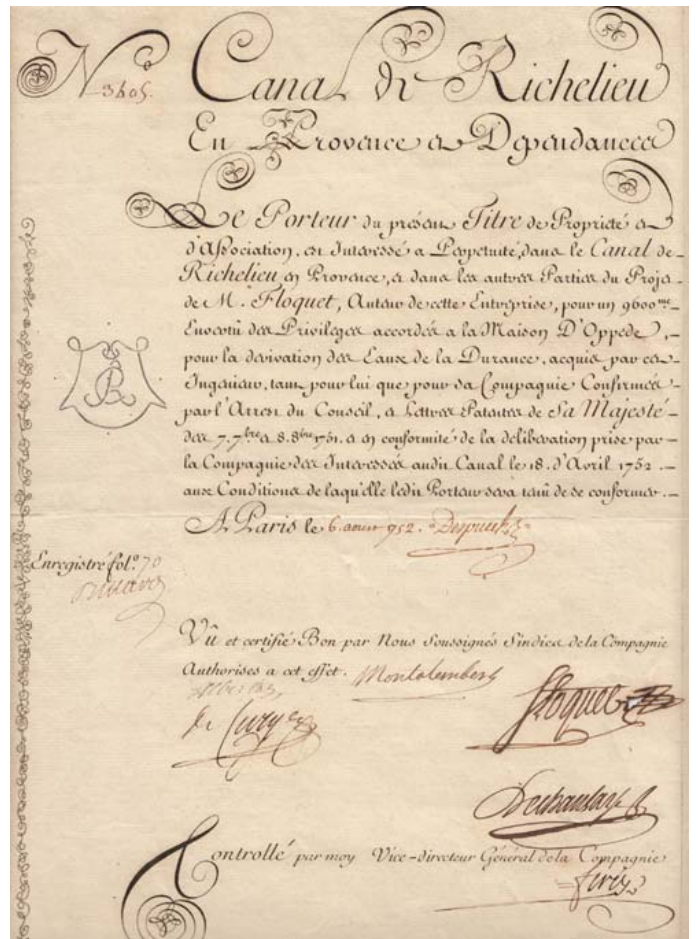 N.º
3405.
Canal de Richelieu
En Provence et Dependances
Le Porteur du present Titre de Proprieté et
d'Association, est Interessé a Perpetuité, dans le Canal de
Richelieu en Provence, et dans les autres Parties du Projet
de M. Floquet, Auteur de cette Entreprise, pour un 9600.me
En vertû des Privileges accordés a la Maison D'Oppede,
pour la derivation des Eaux de la Durance, acquis par cet
Ingenieur, tant pour lui que pour sa Compagnie Confirmés
par l'Arrest du Conseil, et Lettres Patentes de Sa Majesté
des 7. 7.bre et 8. 8.bre 1751. et en conformité de la deliberation prise par
la Compagnie des Interessés audit Canal le 18. d'Avril 1752.
aux Conditions de laquelle ledit Porteur sera tenû de se conformer.
A Paris le 6. aoust 752.
Enregistré fol.º 70
Vû et certifié Bon par Nous Soussignés Sindics de la Compagnie
Authorises a cet effet. Montalembert
de Cury
Floquet
Controllé par moy Vice-directeur Général de la Compagnie